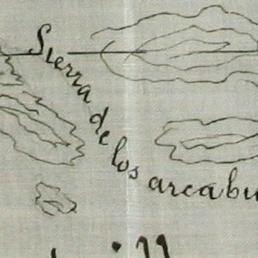 Sierra de los arcabu